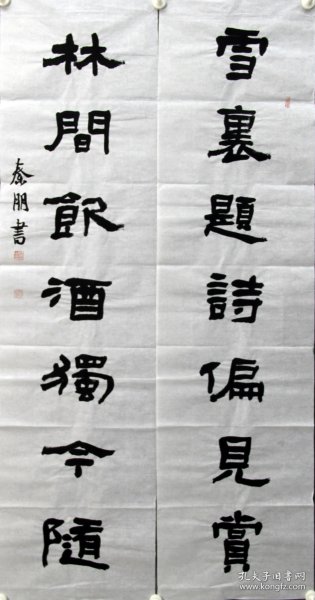 雪裏題詩偏見賞
林間飲酒獨令隨
秦朋書
孔夫子旧书网
www.kongfz.com